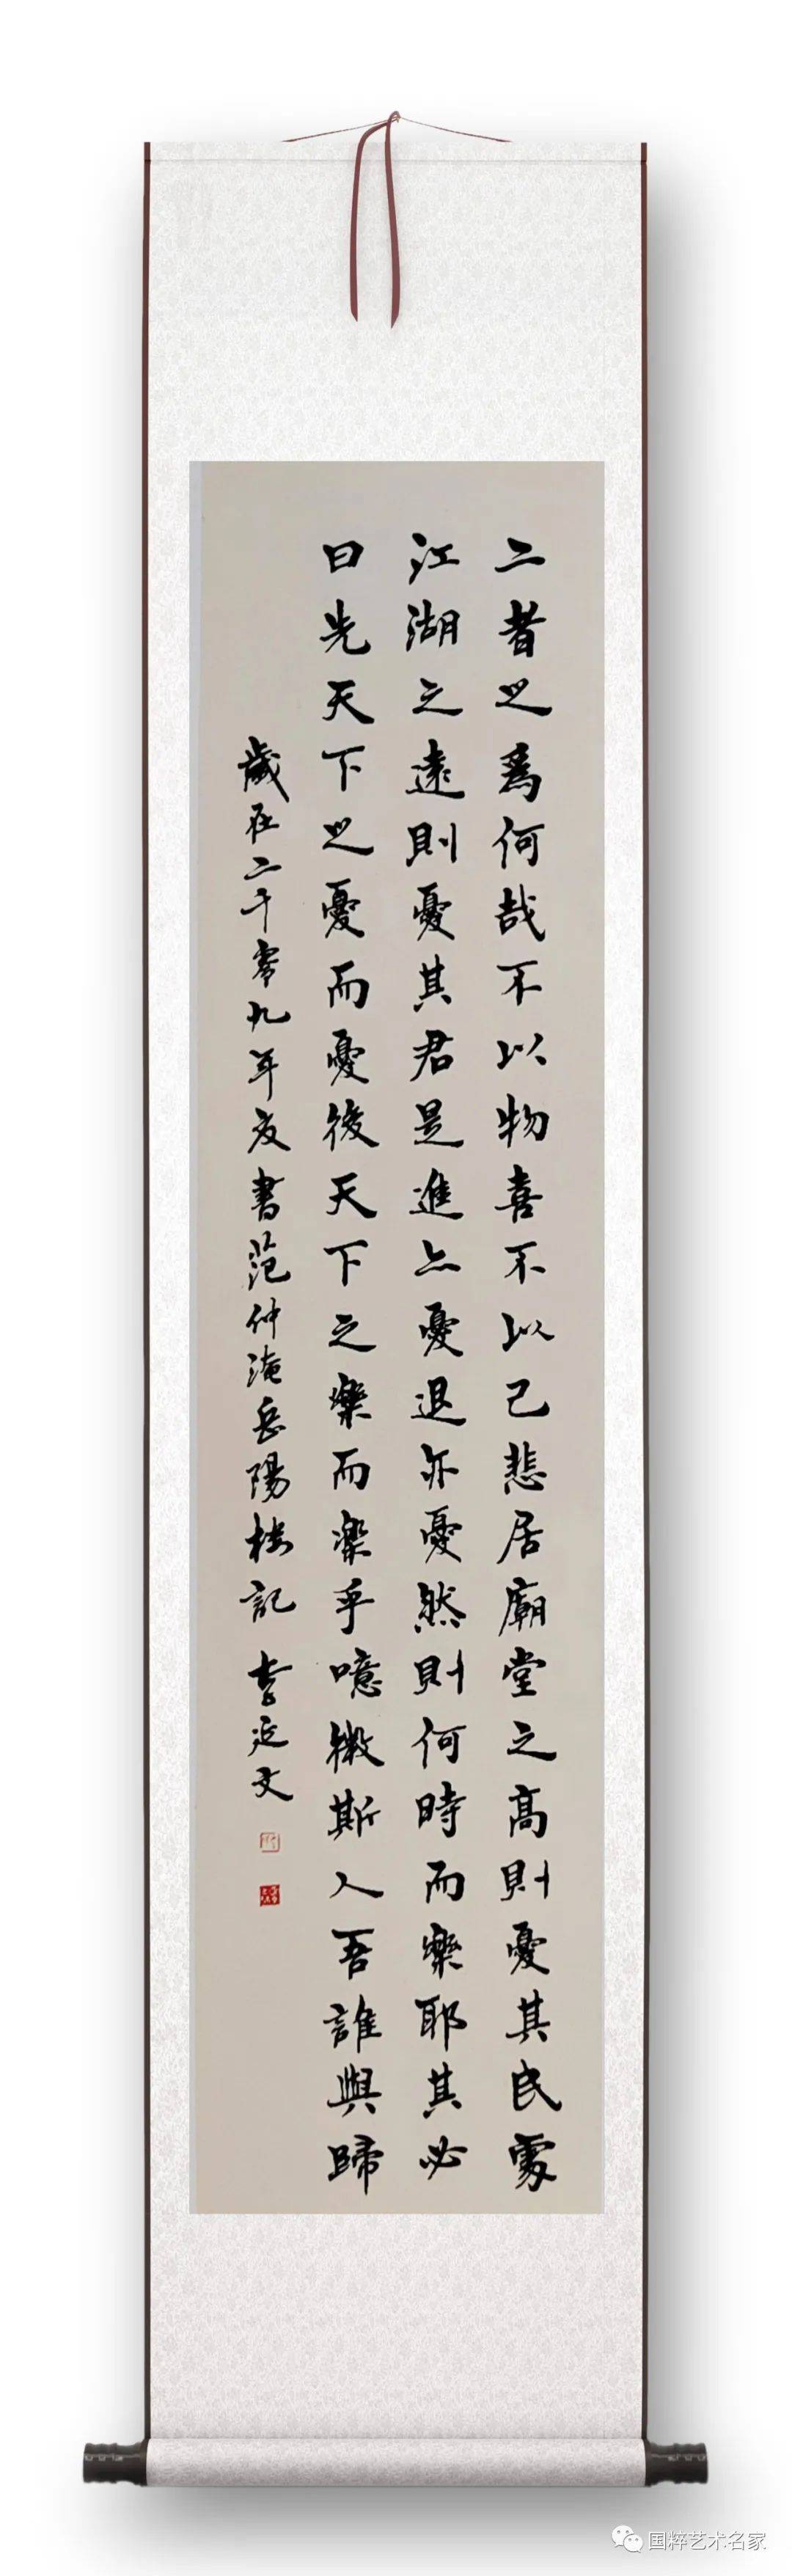 二者之為何哉不以物喜不以己悲居廟堂之高則憂其民處
江湖之遠則憂其君是進亦憂退亦憂然則何時而樂耶其必
曰先天下之憂而憂後天下之樂而樂乎噫微斯人吾誰與歸
歲在二千零九年夏書范仲淹岳陽樓記 李延文
国粹艺术名家